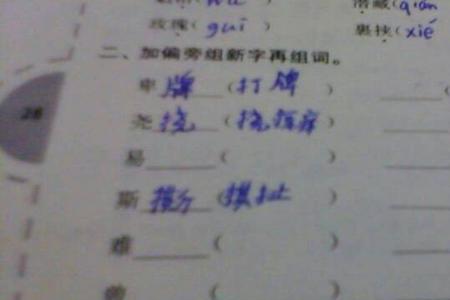 潜藏(qián
玫瑰(guī) 裹挟(xié
二、加偏旁组新字再组词。
28
卑 牌 (打牌)
尧 挠 (挠
易 ( )
斯 撕 (撕扯)
难 ( )